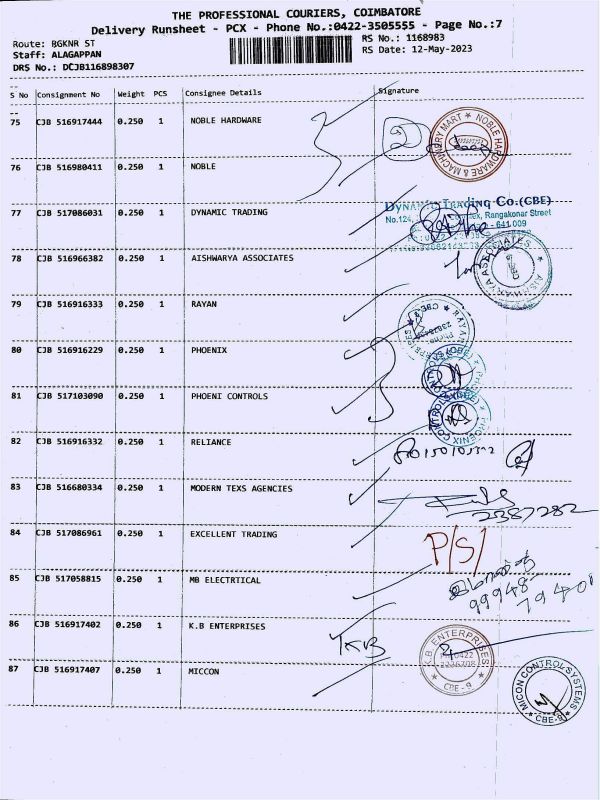 THE PROFESSIONAL COURIERS, COIMBATORE
Delivery Runsheet - PCX - Phone No.:0422-3505555 - Page No.:7
Route: BGKNR ST
RS No.: 1168983
Staff: ALAGAPPAN
RS Date: 12-May-2023
DRS No.: DCJB116898307
S No Consignment No Weight PCS Consignee Details Signature
75 CJB 516917444 0.250 1 NOBLE HARDWARE
NOBLE HARDWARE & MACHINERY MART
76 CJB 516980411 0.250 1 NOBLE
77 CJB 517086031 0.250 1 DYNAMIC TRADING
DYNAMIC TRADING CO.(CBE)
No.124, Rangakonar Street
641 009
78 CJB 516966382 0.250 1 AISHWARYA ASSOCIATES
AISHWARYA ASSOCIATES
79 CJB 516916333 0.250 1 RAYAN
RAYAN
80 CJB 516916229 0.250 1 PHOENIX
81 CJB 517103090 0.250 1 PHOENI CONTROLS
PHOENIX CONTROLS
82 CJB 516916332 0.250 1 RELIANCE
83 CJB 516680334 0.250 1 MODERN TEXS AGENCIES
2387282
84 CJB 517086961 0.250 1 EXCELLENT TRADING
P/S/
85 CJB 517058815 0.250 1 MB ELECTRTICAL
99948
79401
86 CJB 516917402 0.250 1 K.B ENTERPRISES
KB
K.B. ENTERPRISES
CBE-9
87 CJB 516917407 0.250 1 MICCON
MICON CONTROL SYSTEMS
CBE-9